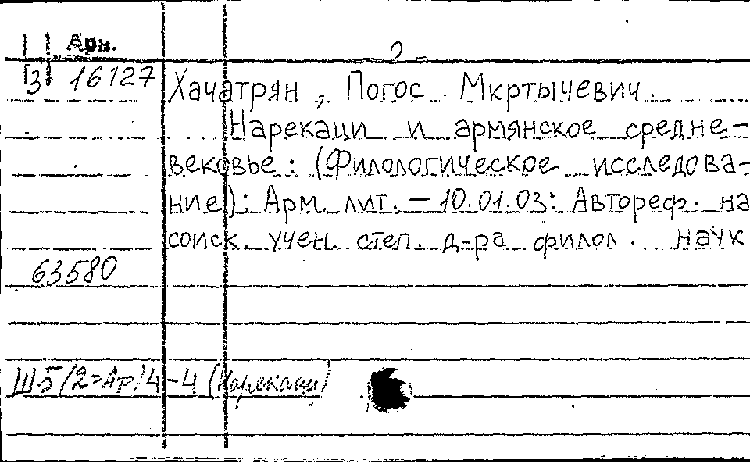 Арм.
2
3 16127
Хачатрян, Погос Мкртычевич.
Нарекаци и армянское средне-
вековье: (Филологическое исследова-
ние): Арм. лит. – 10.01.03: Автореф. на
соиск. учен. степ. д-ра филол. наук
63580
Ш5(2=Ар)4-4 (Нарекаци)